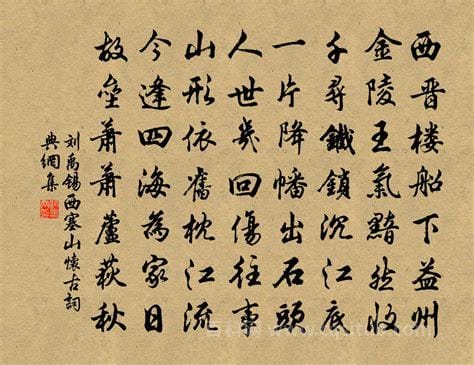 西晋楼船下益州
金陵王氣黯然收
千尋鐵鎖沉江底
一片降幡出石頭
人世幾回傷往事
山形依舊枕江流
今逢四海為家日
故壘蕭蕭蘆荻秋
刘禹锡西塞山懷古詞
典網集